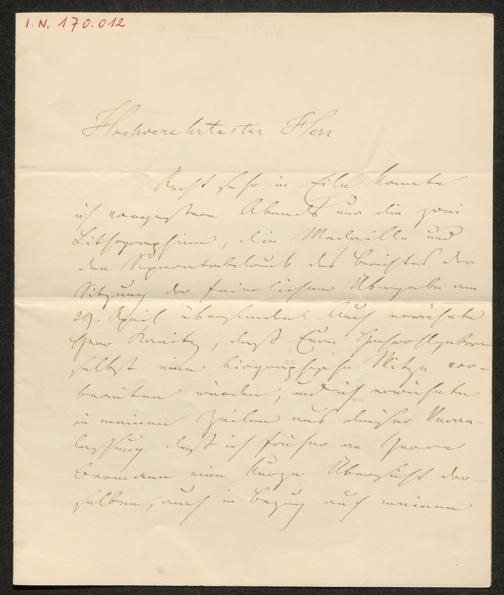 I.N. 170.012
Hochverehrtester Herr
Recht sehr in Eile konnte
ich vorgestern Abends nur die zwei
Lithographien, die Medaille und
den Separatabdruck des Berichtes der
Sitzung der feierlichen Übergabe am
29. April übersenden. Auch erwähnte
Herr Kanitz, daß Euer Hochwohlgeboren
selbst eine biographische Skizze vor-
bereiten würden, und ich erwähnte
in meinen Zeilen aus dieser Veran-
lassung daß ich früher an Herrn
Bermann eine kurze Übersicht der-
selben, auch in Bezug auf meinen